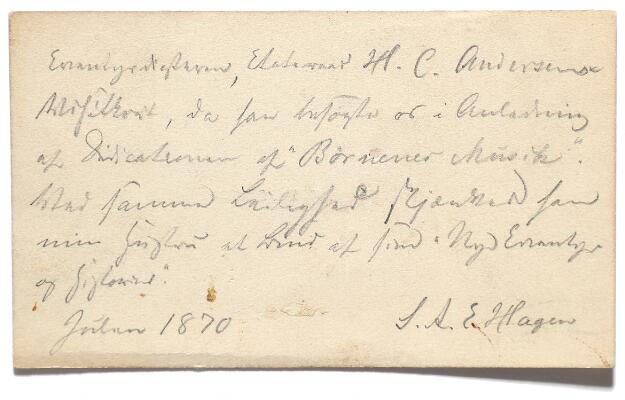 Eventyrdigteren, Etatsraad H. C. Andersens
Visitkort, da han besøgte os i Anledning
af Dedicationen af "Børnenes Musik".
Ved samme Leilighed skjænkede han
min Hustru et Bind af sine "Nye Eventyr
og Historier".
Julen 1870 S. A. E. Hagen